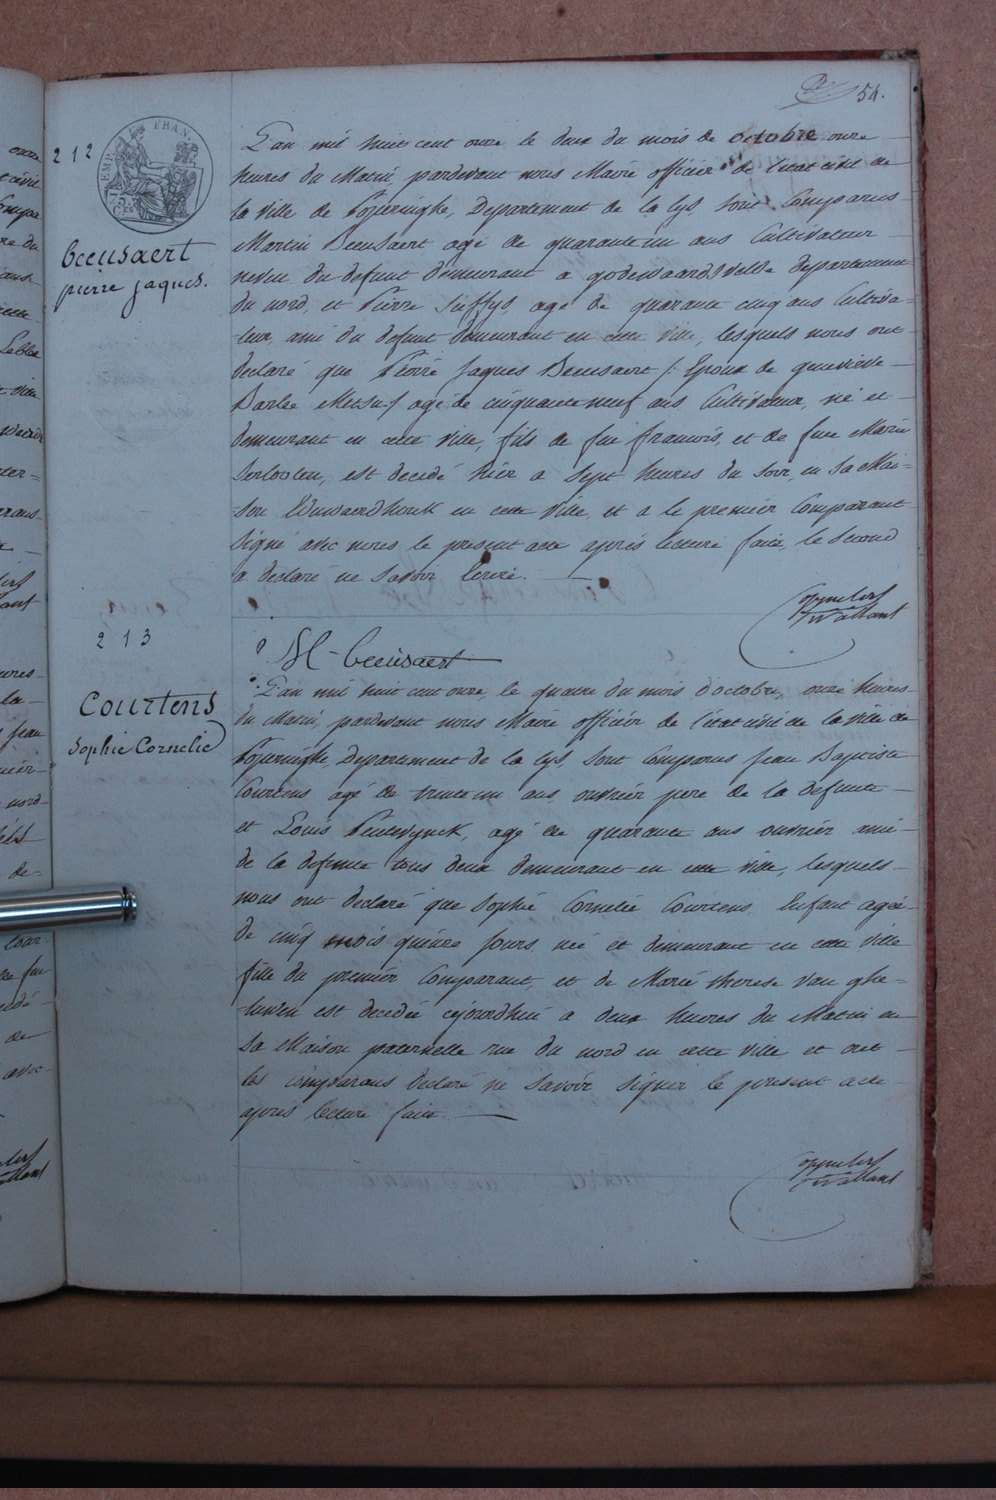 54.
212
EMP. FRAN.
Beeusaert
pierre jaques.
L'an mil huit cent onze le deux du mois de octobre onze
heures du Matin pardevant nous Maire officier de l'etat civil de
la ville de Poperinghe, Departement de la Lys, sont Comparus
Martin Beeusaert agé de quarante un ans Cultivateur
neveu du defunt demeurant a godewaardsvelde departement
du nord, et Pierre agé de quarante cinq ans Cultiva-
teur, ami du defunt demeurant en cette ville, lesquels nous ont
declaré que Pierre Jaques Beeusaert /: Epoux de genevieve
Barbe agé de cinquante neuf ans Cultivateur, né et
demeurant en cette ville, fils de feu francois, et de feue Marie
est decedé hier a sept heures du soir, en sa Mai-
son en cette ville, et a le premier Comparant
signé avec nous le present acte aprés lecture faite, le second
a declaré ne savoir Ecrire.
M-beeusaert
213
Courtens
Sophie Cornelie
L'an mil huit cent onze, le quatre du mois d'octobre, onze heures
du Matin, pardevant nous Maire officier de l'état civil de la ville de
Poperinghe, Departement de la Lys, sont Comparus jean Baptiste
Courtens agé de trente un ans ouvrier pere de la defunte
et Louis agé de quarante ans ouvrier ami
de la defunte tous deux demeurant en cette ville, lesquels
nous ont declaré que Sophie Cornelie Courtens Enfant agée
de cinq mois quinze jours née et demeurant en cette ville
fille du premier Comparant, et de Marie therese Van ghe-
luwen est decedée cejourdhui a deux heures du Matin en
sa Maison paternelle rue du nord en cette ville et ont
les comparans declaré ne savoir signer le present acte
aprés lecture faite.